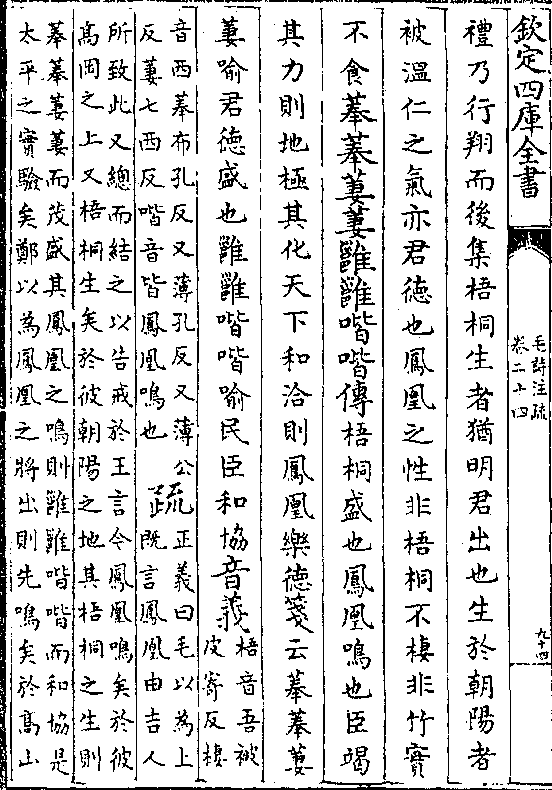 欽定四庫全書
毛詩注疏
卷二十四
九十四
禮乃行翔而後集梧桐生者猶明君出也生於朝陽者
被溫仁之氣亦君德也鳳凰之性非梧桐不棲非竹實
不食菶菶萋萋雝雝喈喈傳梧桐盛也鳳凰鳴也臣竭
其力則地極其化天下和洽則鳳凰樂德箋云菶菶萋
萋喻君德盛也雝雝喈喈喻民臣和協音義
梧音吾被
皮寄反棲
音西菶布孔反又薄孔反又薄公
反萋七西反喈音皆鳳凰鳴也
疏
正義曰毛以為上
既言鳳凰由吉人
所致此又總而結之以告戒於王言今鳳凰鳴矣於彼
高岡之上又梧桐生矣於彼朝陽之地其梧桐之生則
菶菶萋萋而茂盛其鳳凰之鳴則雝雝喈喈而和協是
太平之實驗矣鄭以為鳳凰之將出則先鳴矣於高山